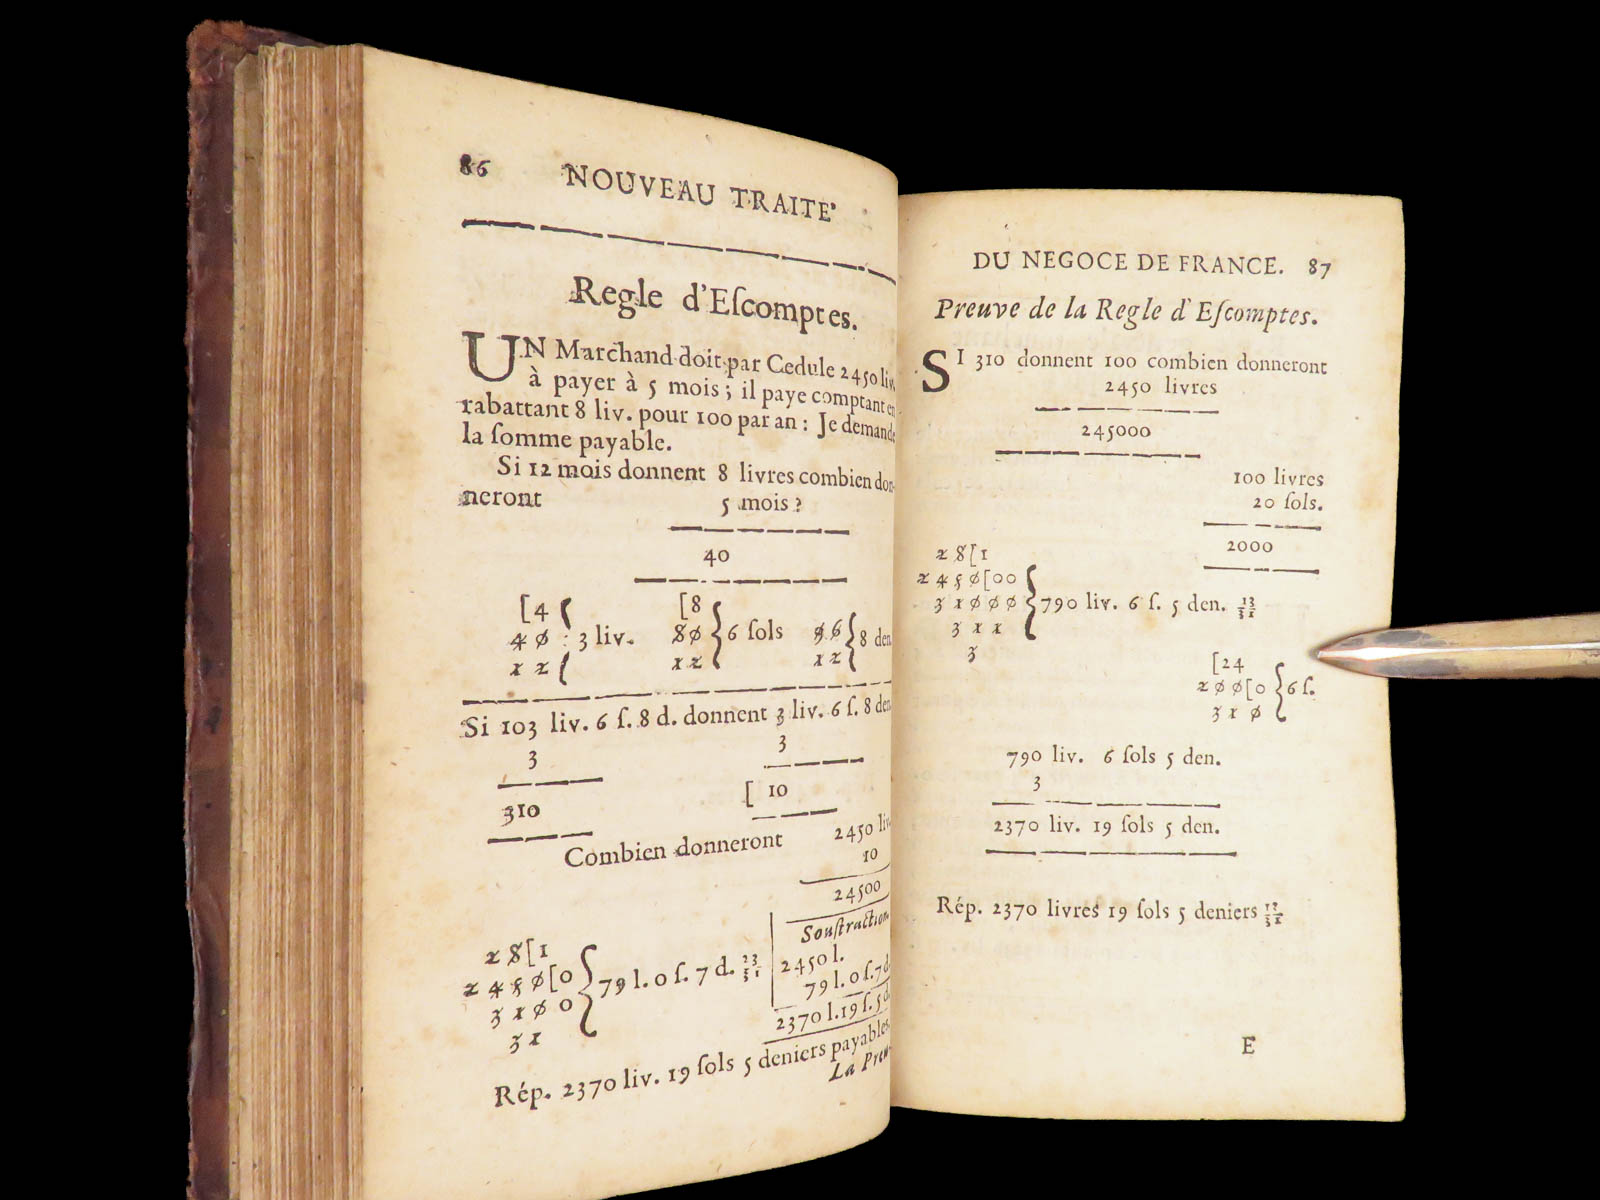 86 NOUVEAU TRAITE'
Regle d'Eſcomptes.
UN Marchand doit par Cedule 2450 liv.
à payer à 5 mois ; il paye comptant en
rabattant 8 liv. pour 100 par an : Je demande
la ſomme payable.
Si 12 mois donnent 8 livres combien don-
neront 5 mois ?
40
[4 [8
40 : 3 liv. 80 6 ſols 96 8 den
12 12 12
Si 103 liv. 6 ſ. 8 d. donnent 3 liv. 6 ſ. 8 den.
3 3
310 [ 10
Combien donneront 2450 liv.
10
24500
Souſtraction
2450 l.
79 l. 0 ſ. 7 d.
2370 l. 19 ſ. 5 d.
2 8 [1
2 4 5 0 [0 79 l. 0 ſ. 7 d. 23/31
3 1 0 0
3 1
Rép. 2370 liv. 19 ſols 5 deniers payables.
La Preu-
DU NEGOCE DE FRANCE. 87
Preuve de la Regle d'Eſcomptes.
SI 310 donnent 100 combien donneront
2450 livres
245000
100 livres
20 ſols.
2000
2 8 [1
2 4 5 0 [00
3 1 0 0 0 790 liv. 6 ſ. 5 den. 13/31
3 1 1
3
[24
2 0 0 [0 6 ſ.
3 1 0
790 liv. 6 ſols 5 den.
3
2370 liv. 19 ſols 5 den.
Rép. 2370 livres 19 ſols 5 deniers
E